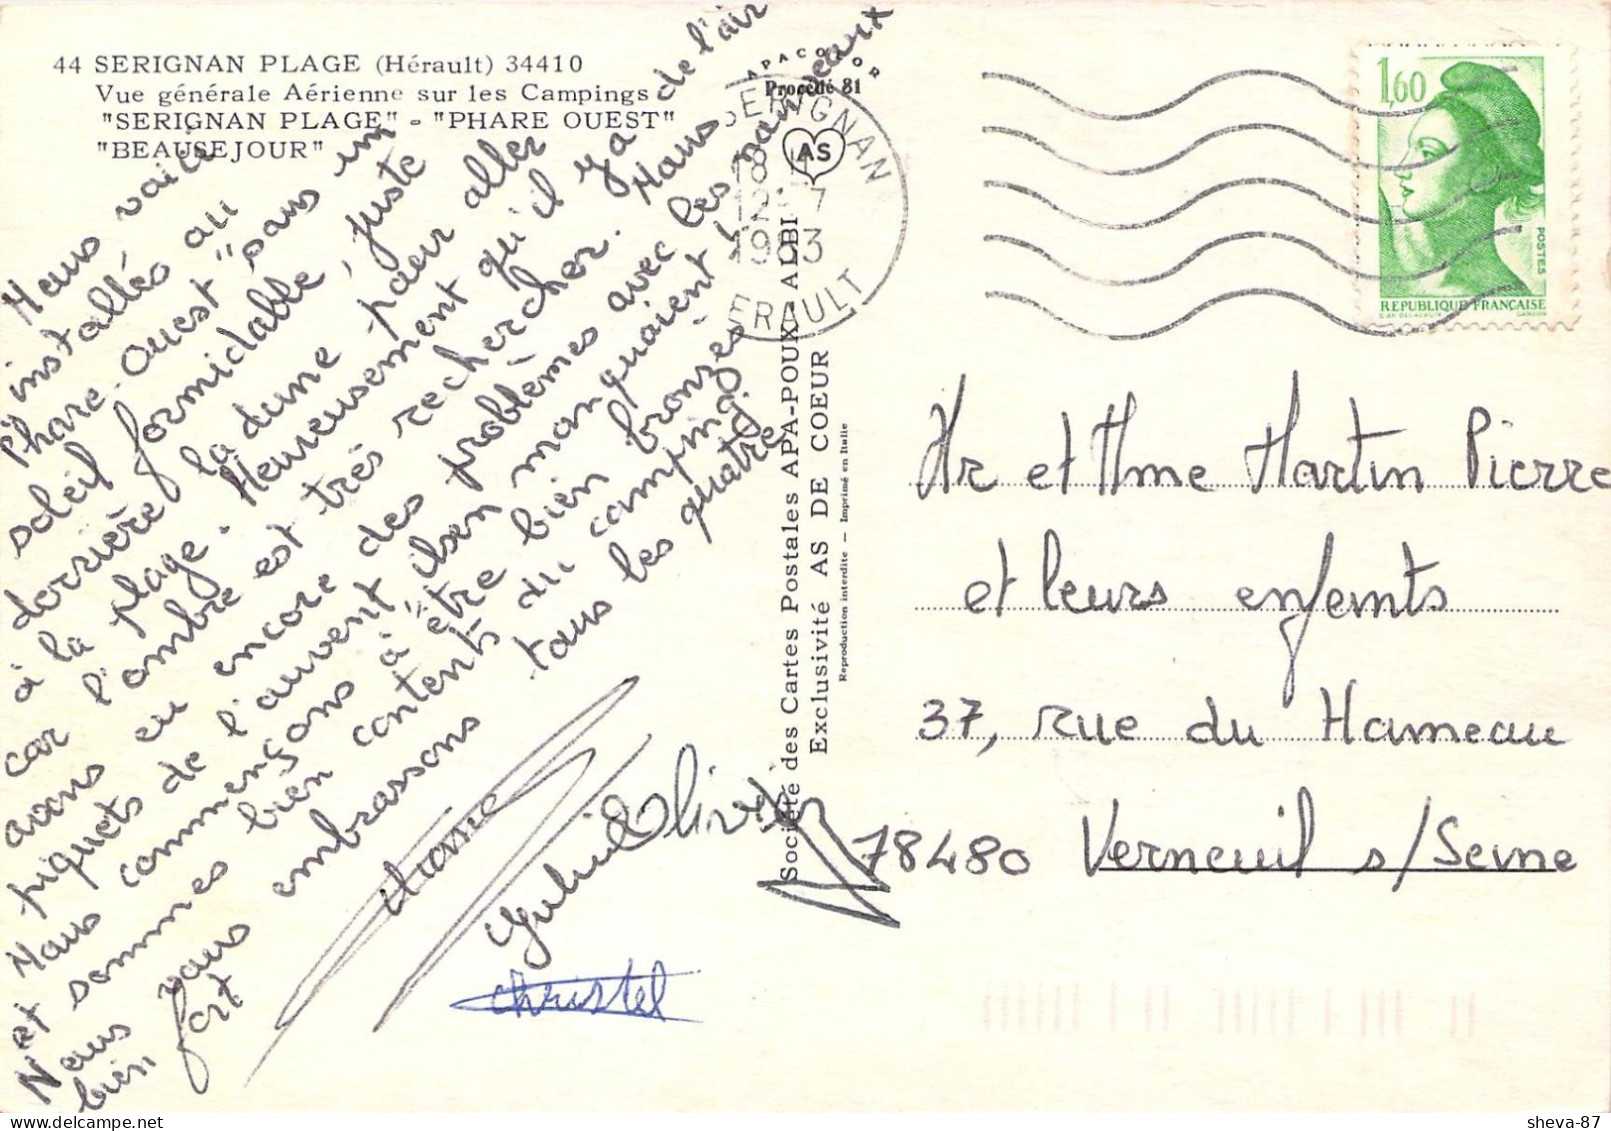 44 SERIGNAN PLAGE (Hérault) 34410
Vue générale Aérienne sur les Campings
"SERIGNAN PLAGE" - "PHARE OUEST"
"BEAUSEJOUR"
Nous voici
installés au
"Phare Ouest" sous un
soleil formidable, juste
derrière la dune pour aller
à la plage. Heureusement qu'il y a de l'air
car l'ombre est très rechercher. Nous
avons eu encore des problèmes avec les nouveaux
piquets de l'auvent ils en manquaient
Nous commençons à être bien bronzés
et sommes bien contents du camping.
Nous vous embrassons tous les quatre
bien fort
Olivier
Christel
APACOLOR
Procédé 81
AS
SERIGNAN
18 H
12-7
1983
HERAULT
Société des Cartes Postales APA-POUX - ALBI
Exclusivité AS DE COEUR
Reproduction interdite — Imprimé en Italie
1,60
POSTES
REPUBLIQUE FRANÇAISE
D'AP. DELACROIX GANDON
Mr et Mme Martin Pierre
et leurs enfants
37, rue du Hameau
78480 Verneuil s/Seine
sheva-87